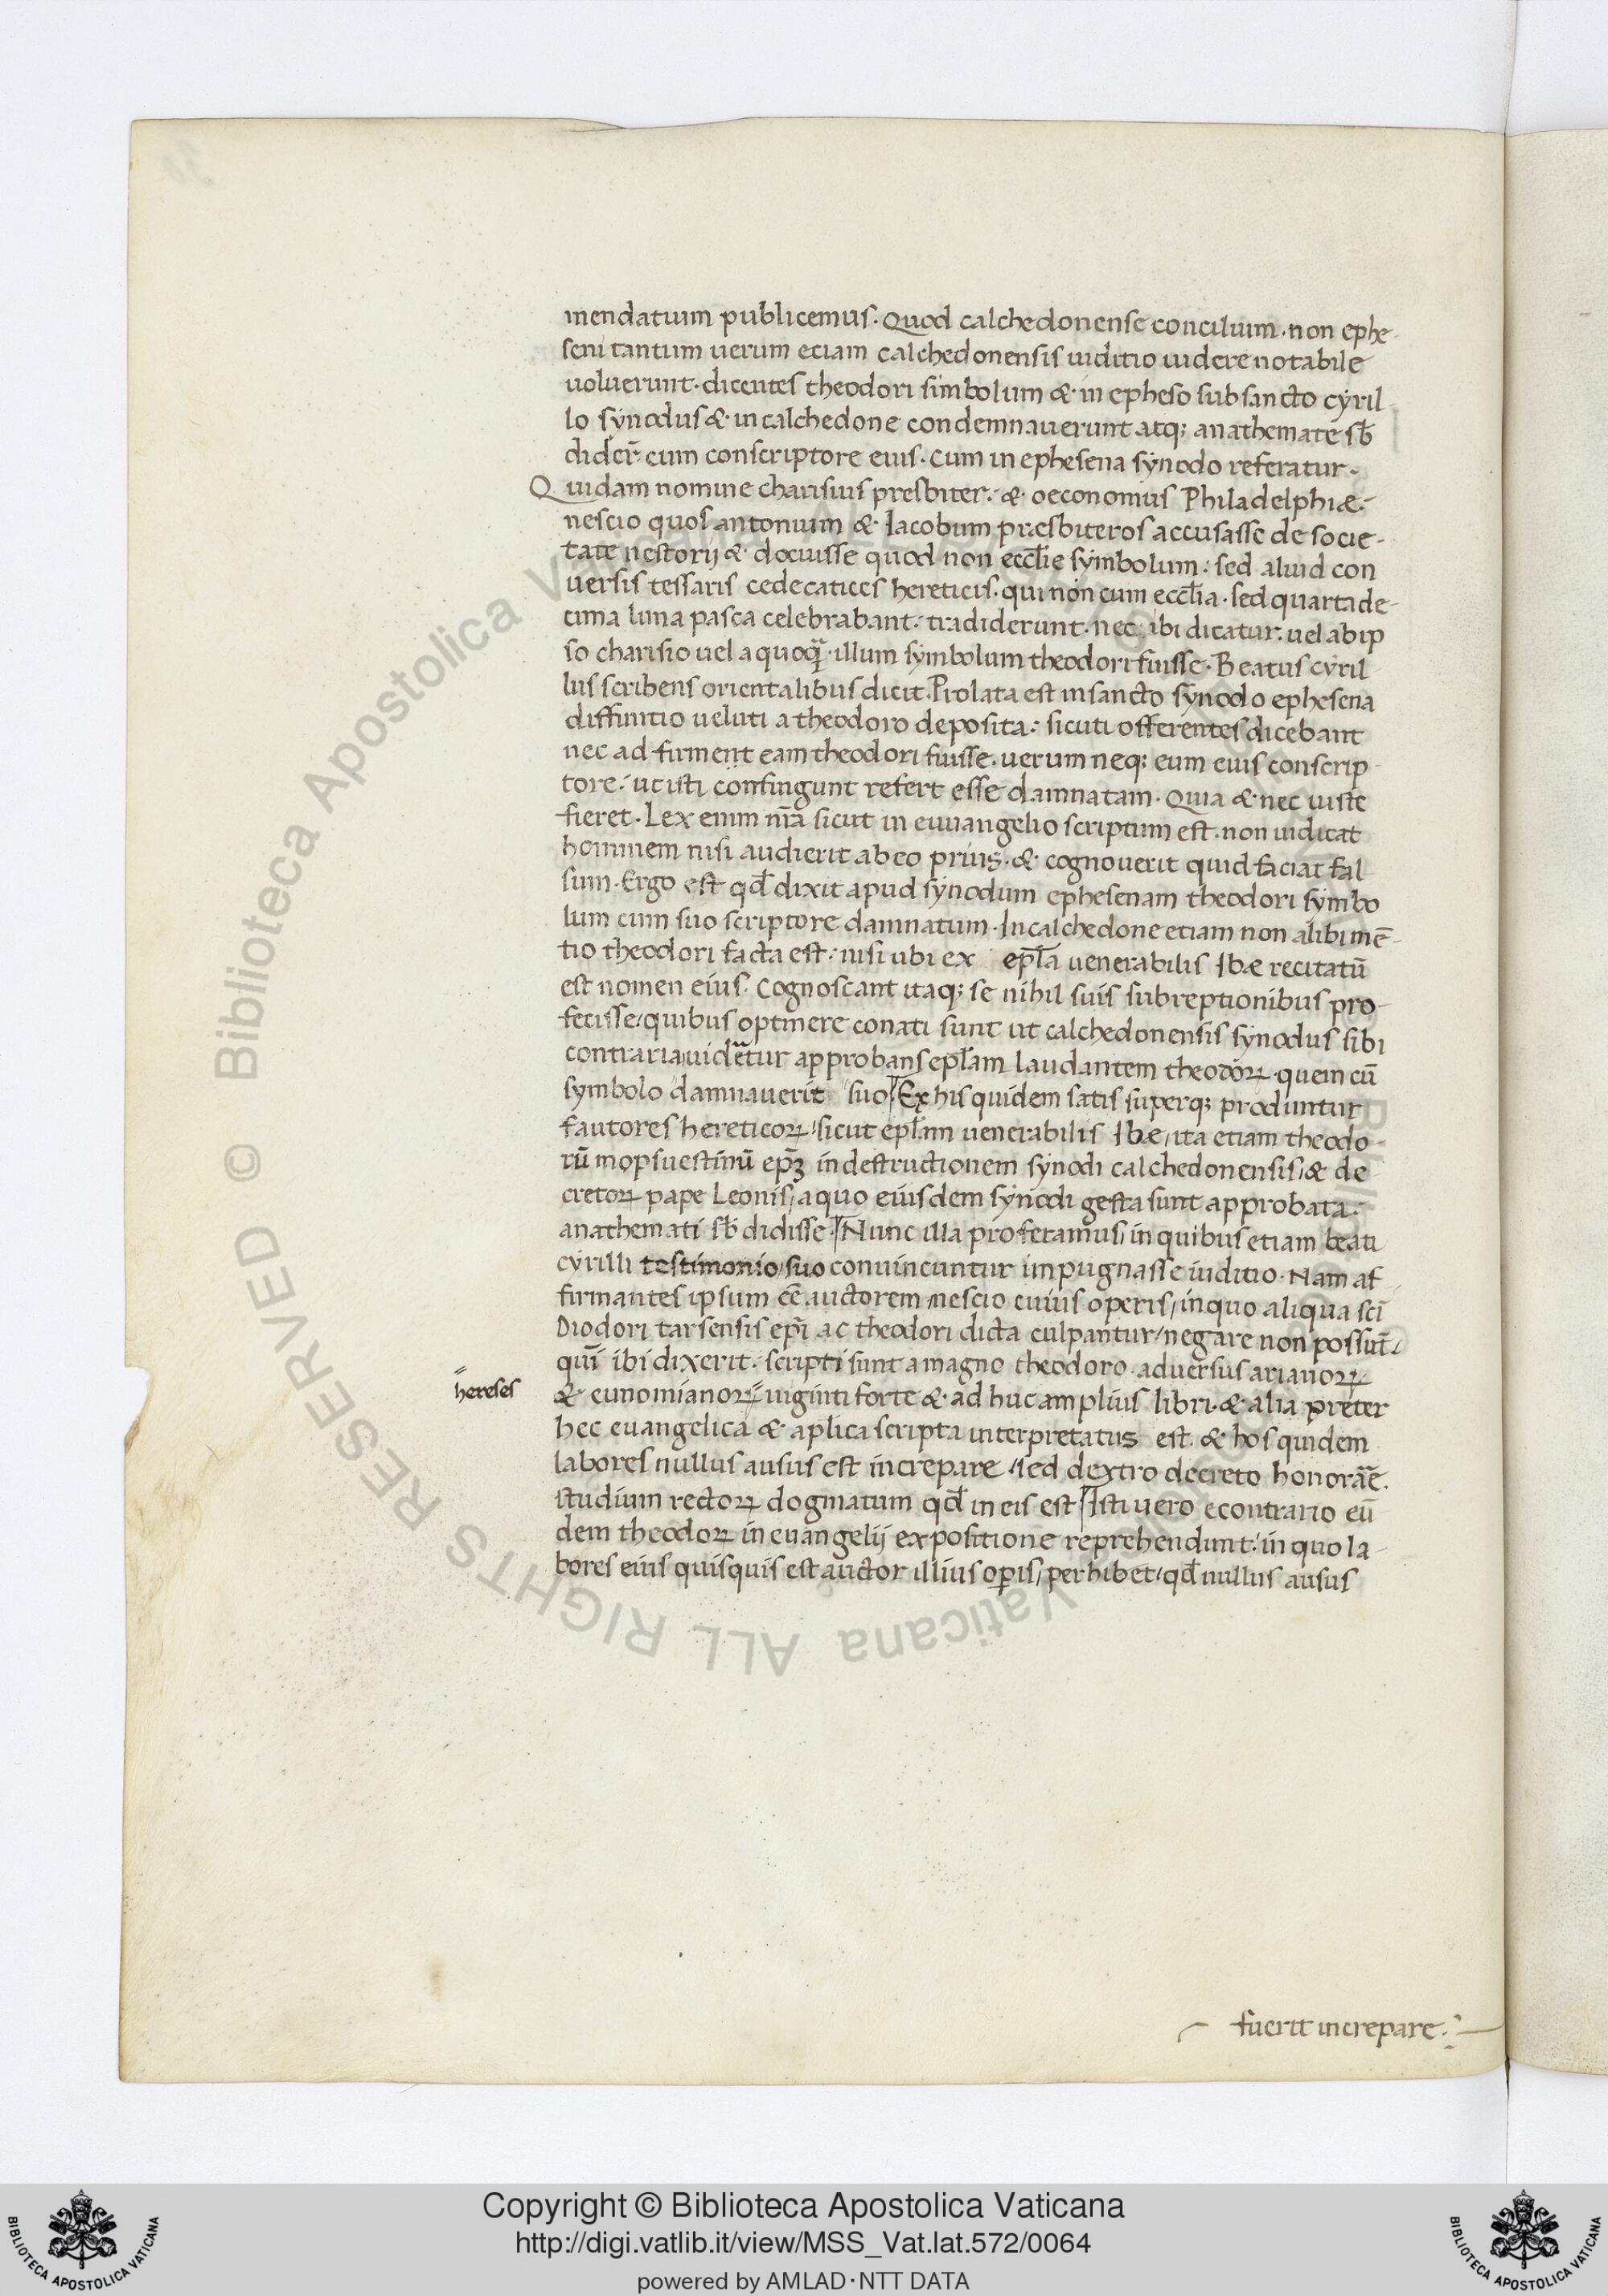 mendatum publicemus. Quod calchedonense concilium. non ephe-
seni tantum uerum eciam calchedonensis iuditio uidere notabile
uoluerunt. dicentes theodori simbolum & in epheso sub sancto cyril-
lo synodus & in calchedone condemnauerunt atq; anathemate sb̄
dider̄ cum conscriptore eius. Cum in ephesena synodo referatur.
Quidam nomine charisius presbiter. & oeconomus Philadelphiæ.
nescio quos antonium & Iacobum præsbiteros accusasse de socie-
tate nestorij & docuisse quod non eccl̄ie symbolum: sed aliud con
uersis tessaris cedecatices hereticis. qui non cum eccl̄ia. sed quartade-
cima luna pasca celebrabant. tradiderunt. nec ibi dicatur. uel ab ip
so charisio uel a quoq̄ȝ illum symbolum theodori fuisse. Beatus cyril
lus scribens orientalibus dicit. Prolata est in sancto synodo ephesena
diffinitio ueluti a theodoro deposita: sicuti offerentes dicebant
nec ad firment eam theodori fuisse. uerum neq; cum eius conscrip-
tore. ut isti confingunt refert esse damnatam. Quia & nec iuste
fieret. Lex enim nr̄a sicut in euuangelio scriptum est. non iudicat
hominem nisi audierit ab eo prius. & cognouerit quid faciat fal
sum. Ergo est qd̄ dixit apud synodum ephesenam theodori symbo
lum cum suo scriptore damnatum. In calchedone etiam non alibi mē-
tio theodori facta est: nisi ubi ex epl̄a uenerabilis Ibæ recitatū
est nomen eius. Cognoscant itaq; se nihil suis subreptionibus pro-
fecisse/quibus optinere conati sunt ut calchedonensis synodus sibi
contraria uideatur approbans epl̄am laudantem theodoꝝ. quem cū
symbolo damnauerit suo. Ex his quidem satis superq; produntur
fautores hereticoꝝ/sicut epl̄am uenerabilis Ibæ/ita etiam theodo-
rū mopsuestinū ep̄ȝ in destructionem synodi calchedonensis/& de
cretoꝝ pape Leonis/a quo eiusdem synodi gesta sunt approbata.
anathemati sb̄ didisse. Nunc illa proferamus/in quibus etiam beati
cyrilli testimonio/suo conuincuntur impugnasse iuditio. Nam af
firmantes ipsum eē auctorem/nescio cuius operis/in quo aliqua sc̄i
Diodori tarsensis ep̄i ac theodori dicta culpantur/negare non possūt/
qui ibi dixerit. scripti sunt a magno theodoro. aduersus arianoꝝ
& eunomianoꝝ uiginti forte & ad huc amplius libri. & alia preter
hereses
hec euangelica & aplica scripta interpretatus est. & hos quidem
labores nullus ausus est increpare/sed dextro decreto honorare.
studium rectoꝝ dogmatum qd̄ in eis est Isti uero econtrario eū
dem theodoꝝ in euangelij expositione reprehendunt: in quo la-
bores eius quisquis est auctor illius operis/perhibet/qd̄ nullus ausus
fuerit increpare:
© Biblioteca Apostolica Vaticana ALL RIGHTS RESERVED
Copyright © Biblioteca Apostolica Vaticana
http://digi.vatlib.it/view/MSS_Vat.lat.572/0064
powered by AMLAD·NTT DATA
BIBLIOTECA APOSTOLICA VATICANA
BIBLIOTECA APOSTOLICA VATICANA